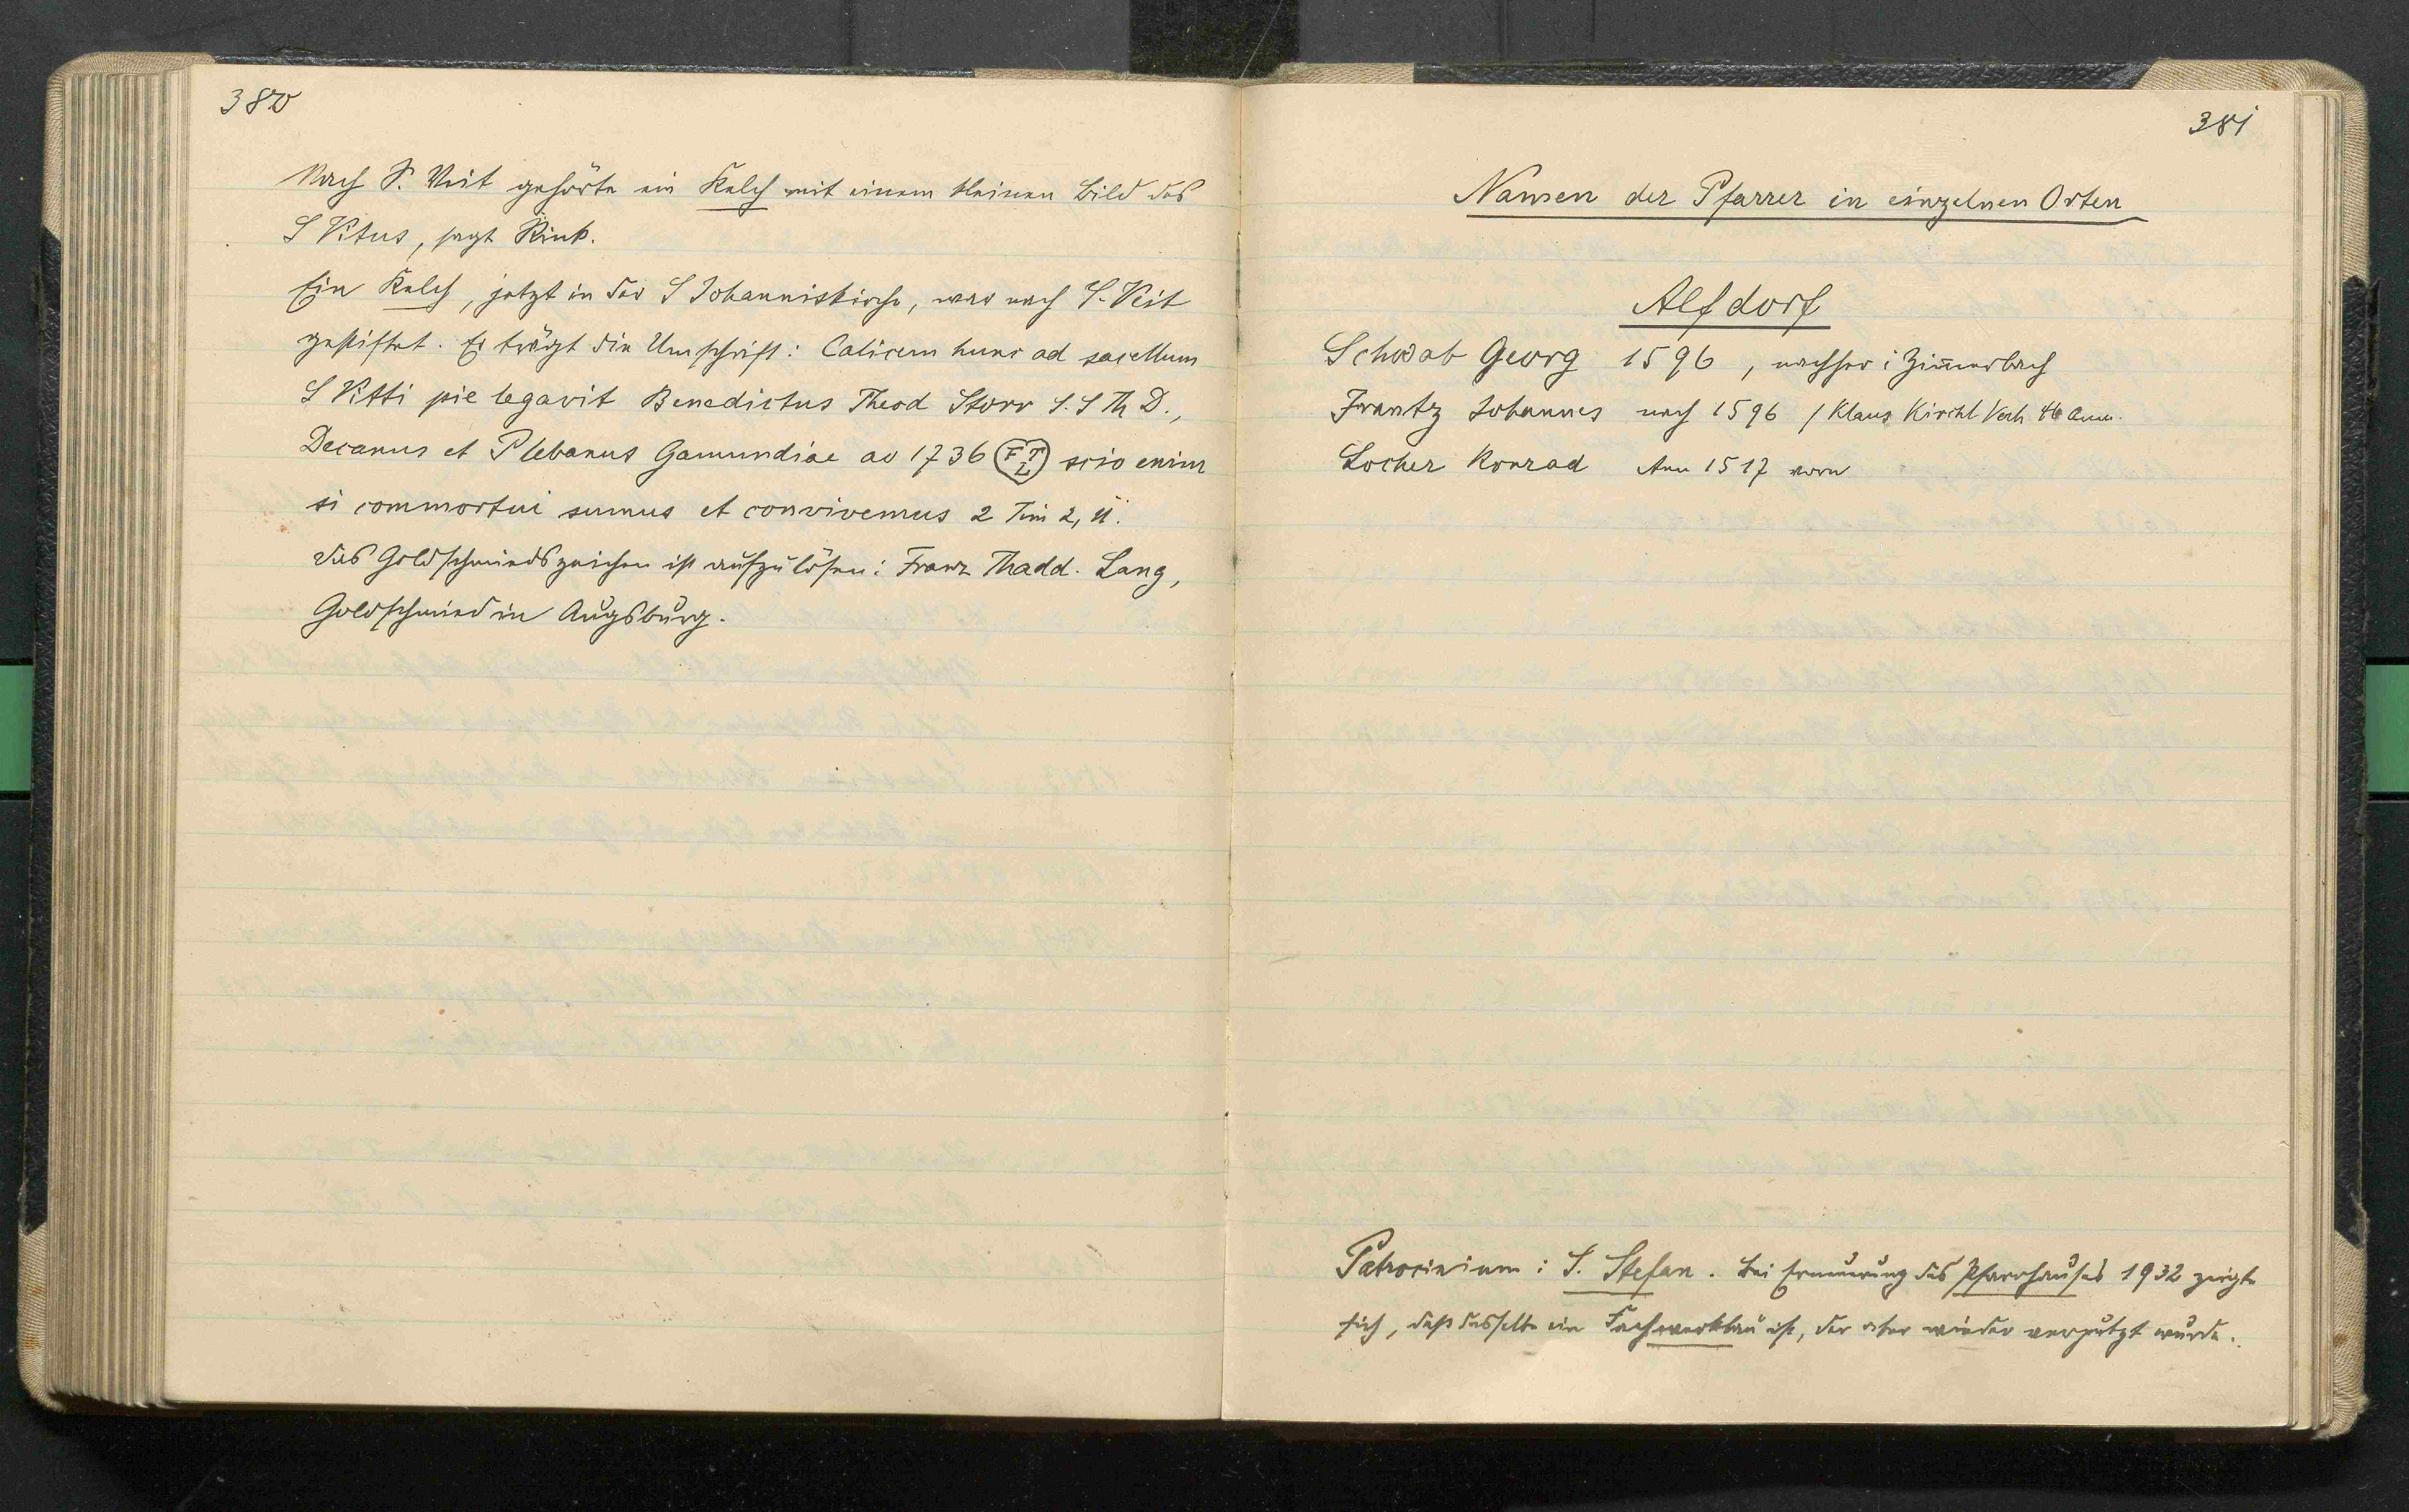 380
Nach S. Veit gehörte ein Kelch mit einem kleinen Bild des
S Vitus, sagt Rink.
Ein Kelch, jetzt in der S Johanniskirche, war nach S. Veit
gestiftet. Er trägt die Umschrift: Calicem hunc ad sacellum
S Vitti pie legavit Benedictus Theod Storr S. S Th D.,
Decanus et Plebanus Gamundiae ao 1736 FTL scio enim
si commortui sumus et convivemus 2 Tim 2, 11.
Das Goldschmiedszeichen ist aufzulösen: Franz Thadd. Lang,
Goldschmied in Augsburg.
381
Namen der Pfarrer in einzelnen Orten
Alfdorf
Schwab Georg 1596, nachher i Zim̄erbach
Frantz Johannes nach 1596 / Klaus Kirchl Verh 46 Anm.
Locher Konrad 1517
Patrocinium: S. Stefan. Bei Erneuerung des Pfarrhauses 1932 zeigte
sich, daß dasselbe ein Fachwerkbau ist, der aber wieder verputzt wurde.